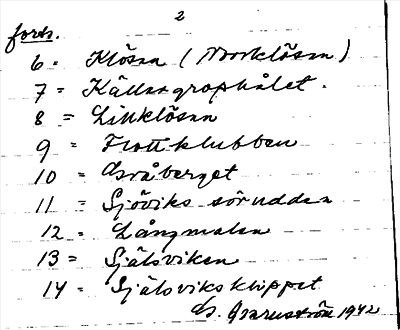 2
forts.
6 = Klösan (Norrklösan)
7 = Källargrophålet.
8 = Lillklösan
9 = Flottklubben
10 = Gråberget
11 = Sjöviks sörudden
12 = Långmalen
13 = Själsviken
14 = Själsviksklippet
G. 1942